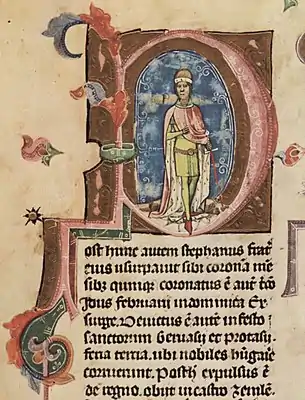 Post hunc autem stephanus frat᷑
eius usurpauit sibi coronā me
sibꝫ quinqꝫ coronatus ē aut̄
Idus februarii in dominica Ex
surge. Deuictus ē aūt in festo
sanctorum Geruasii et protasii
feria tercia. ubi nobiles hūgarie
corruerunt. Posth̄ expulsus ē
de regno. obiit in castro zemlē.